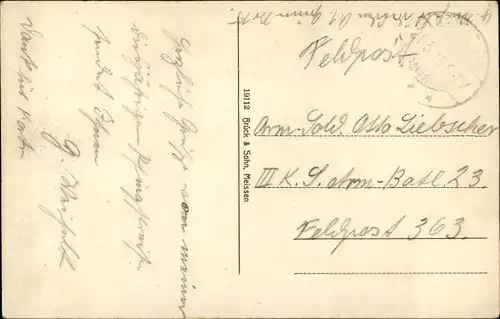 Feldpost
Arm.-Sold. Otto Liebscher
III K. S. Arm.-Batl. 23.
Feldpost 363.
19112 Brück & Sohn, Meissen
Herzliche Grüße von meiner
diesjährigen Pfingstreise
sendet Ihnen
Dank für Karte